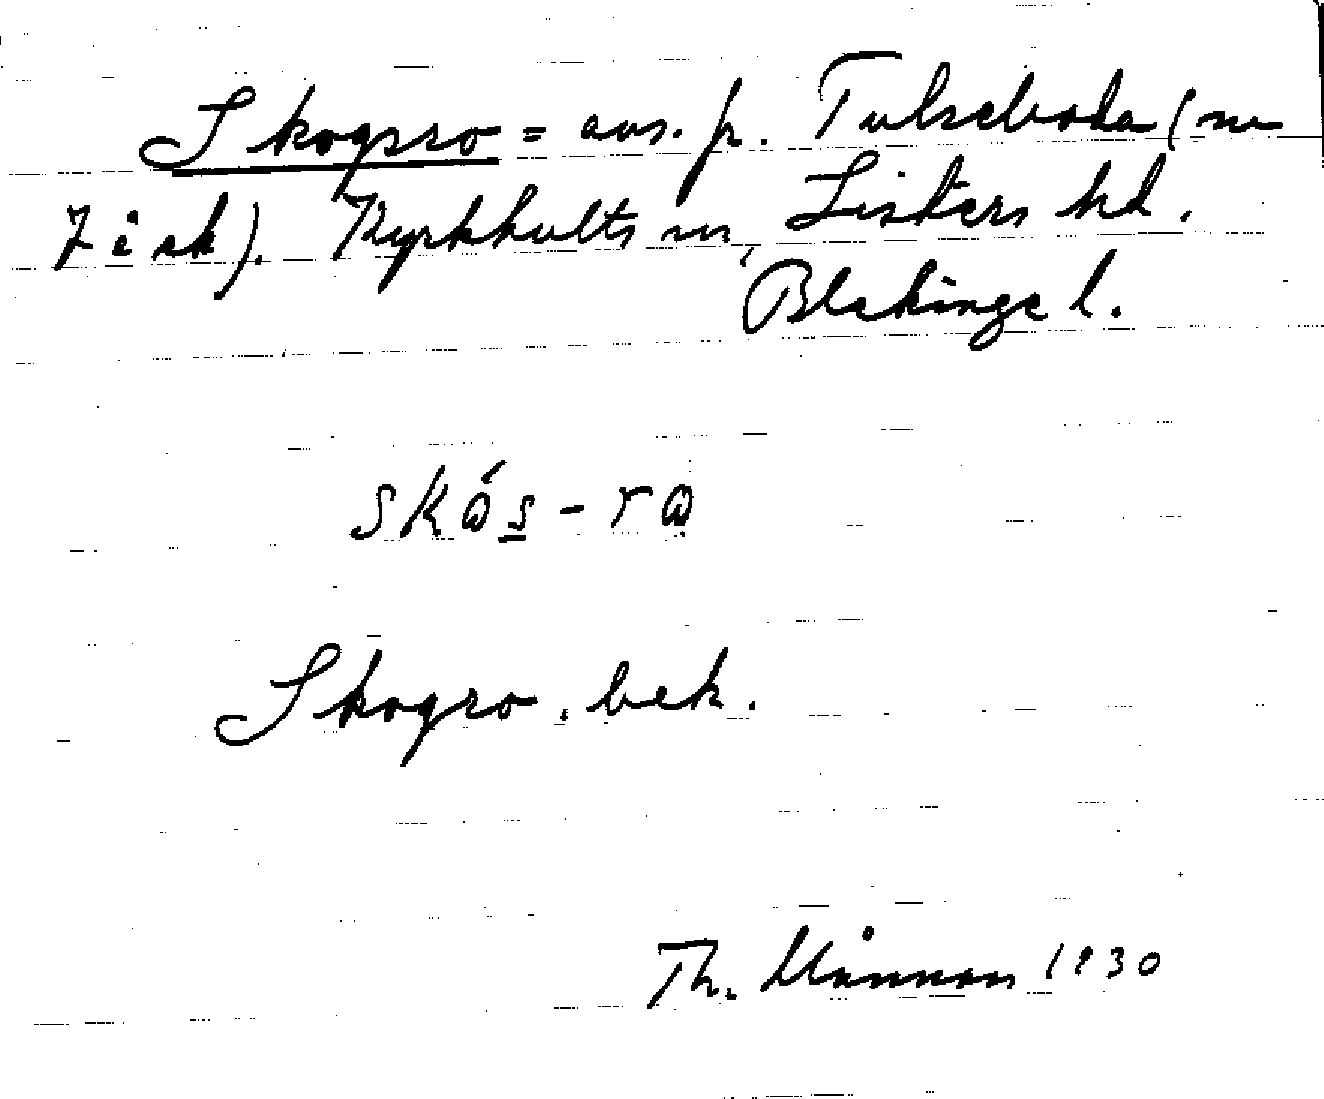 Skogsro = avs. fr. Tulseboda (nr
7 i sk). Kyrkhults sn, Listers hd.
Blekinge l.
skós - ro
Skogro. bek.
Th. Månsson 1930